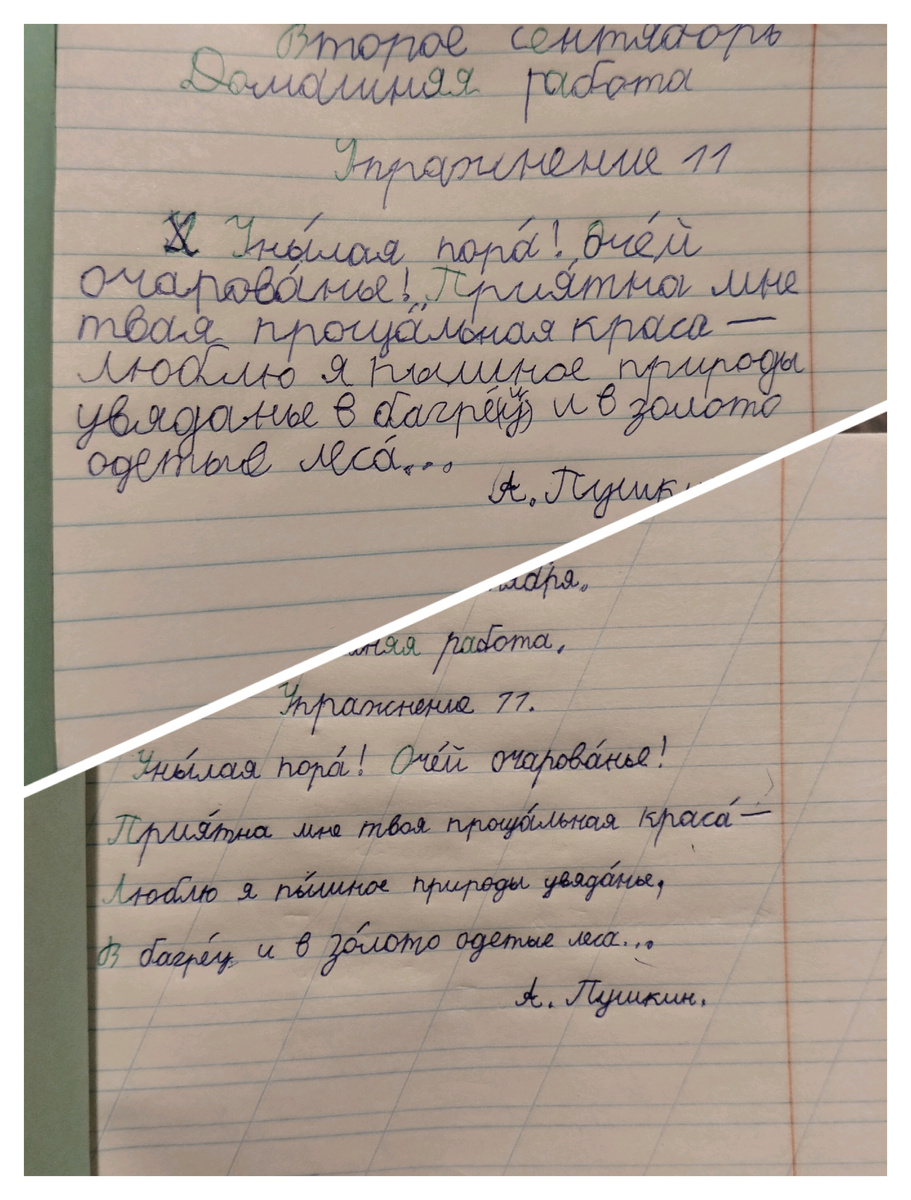 Второе сентяборь
Домашняя работа
Упражнение 11
Уны́лая пора́! Оче́й
очарова́нье! Прия́тна мне
твая проща́льная краса —
Люблю я пышное природы
увяданье в багре́(ц) и в золото
одетые леса́...
А. Пушки
тября.
няя работа.
Упражнение 11.
Уны́лая пора́! Оче́й очарова́нье!
Прия́тна мне твоя проща́льная краса́ —
Люблю я пы́шное природы увяда́нье,
В багре́ц и в зо́лото одетые леса...
А. Пушкин.